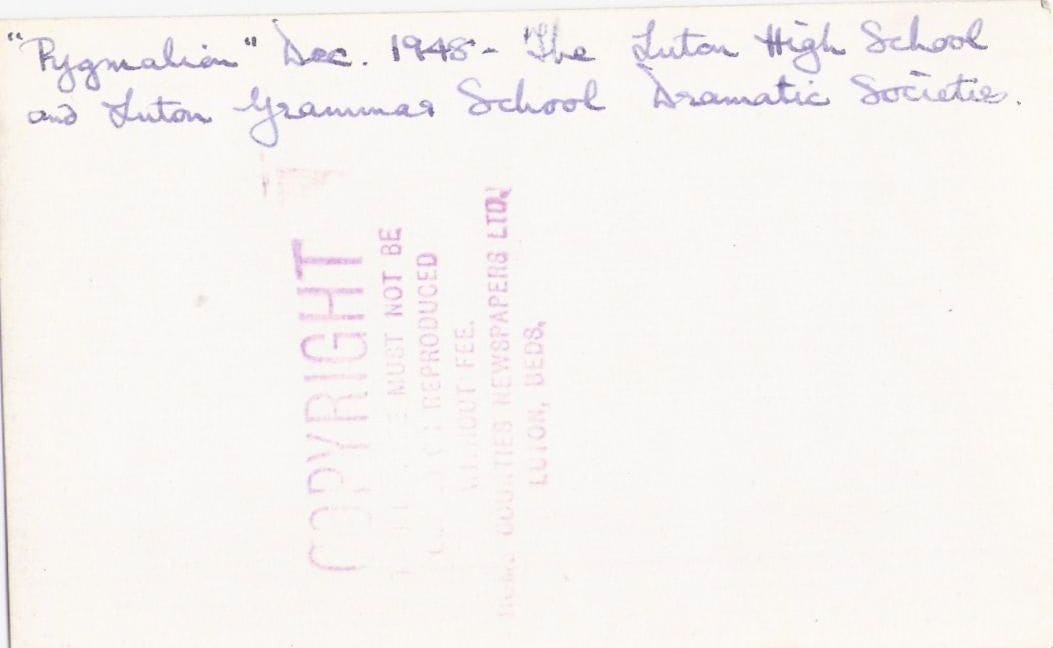 "Pygmalion" Dec. 1948 - The Luton High School
and Luton Grammar School Dramatic Societies.
COPYRIGHT
MUST NOT BE
REPRODUCED
WITHOUT FEE.
HOME COUNTIES NEWSPAPERS LTD,
LUTON, BEDS.